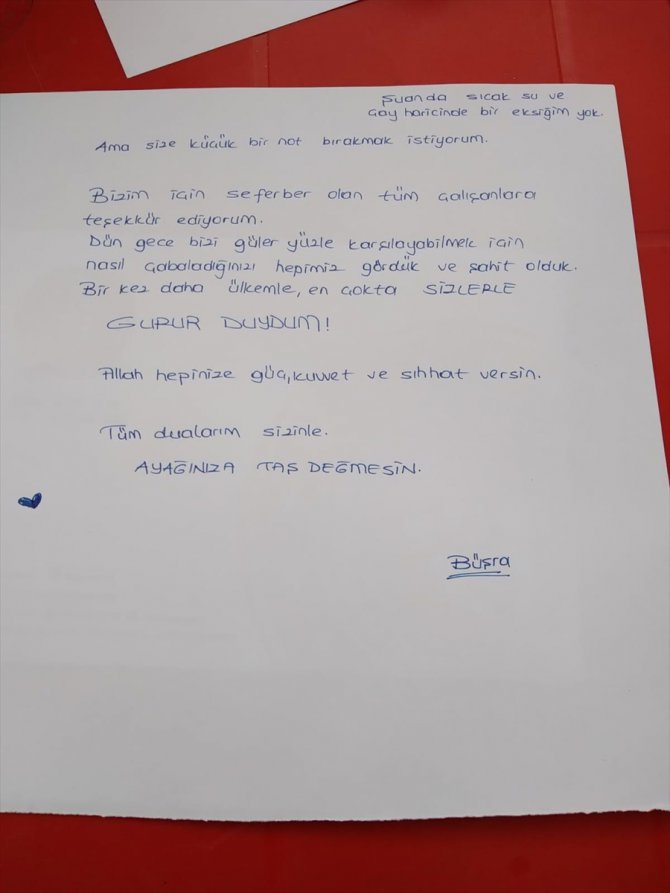 Şuanda sıcak su ve
çay haricinde bir eksiğim yok.
Ama size küçük bir not bırakmak istiyorum.
Bizim için seferber olan tüm çalışanlara
teşekkür ediyorum.
Dün gece bizi güler yüzle karşılayabilmek için
nasıl çabaladığınızı hepimiz gördük ve şahit olduk.
Bir kez daha ülkemle, en çokta SİZLERLE
GURUR DUYDUM!
Allah hepinize güç, kuvvet ve sıhhat versin.
Tüm dualarım sizinle.
AYAĞINIZA TAŞ DEĞMESİN.
Büşra